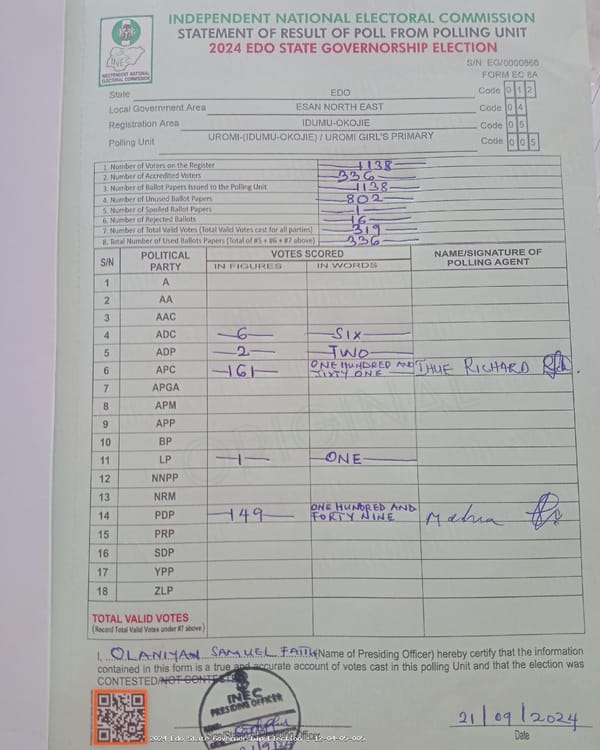 INDEPENDENT NATIONAL ELECTORAL COMMISSION
STATEMENT OF RESULT OF POLL FROM POLLING UNIT
2024 EDO STATE GOVERNORSHIP ELECTION
INEC
INDEPENDENT NATIONAL ELECTORAL COMMISSION
S/N: EG/0000866
FORM EC 8A
State EDO Code 0 1 2
Local Government Area ESAN NORTH EAST Code 0 4
Registration Area IDUMU-OKOJIE Code 0 5
Polling Unit UROMI-(IDUMU-OKOJIE) / UROMI GIRL'S PRIMARY Code 0 0 5
1. Number of Voters on the Register 1138
2. Number of Accredited Voters 336
3. Number of Ballot Papers Issued to the Polling Unit 1138
4. Number of Unused Ballot Papers 802
5. Number of Spoiled Ballot Papers 1
6. Number of Rejected Ballots 16
7. Number of Total Valid Votes (Total Valid Votes cast for all parties) 319
8. Total Number of Used Ballots Papers (Total of #5 + #6 + #7 above) 336
S/N POLITICAL PARTY VOTES SCORED NAME/SIGNATURE OF POLLING AGENT
IN FIGURES IN WORDS
1 A
2 AA
3 AAC
4 ADC 6 SIX
5 ADP 2 TWO
6 APC 161 ONE HUNDRED AND SIXTY ONE THUE RICHARD
7 APGA
8 APM
9 APP
10 BP
11 LP 1 ONE
12 NNPP
13 NRM
14 PDP 149 ONE HUNDRED AND FORTY NINE
15 PRP
16 SDP
17 YPP
18 ZLP
ORIGINAL
TOTAL VALID VOTES
(Record Total Valid Votes under #7 above)
I, OLANIYAN SAMUEL FAITH (Name of Presiding Officer) hereby certify that the information
contained in this form is a true and accurate account of votes cast in this polling Unit and that the election was
CONTESTED/NOT CONTESTED
INEC
PRESIDING OFFICER
21/09/2024
Date
2024 Edo State Governorship Election - 12-04-05-005